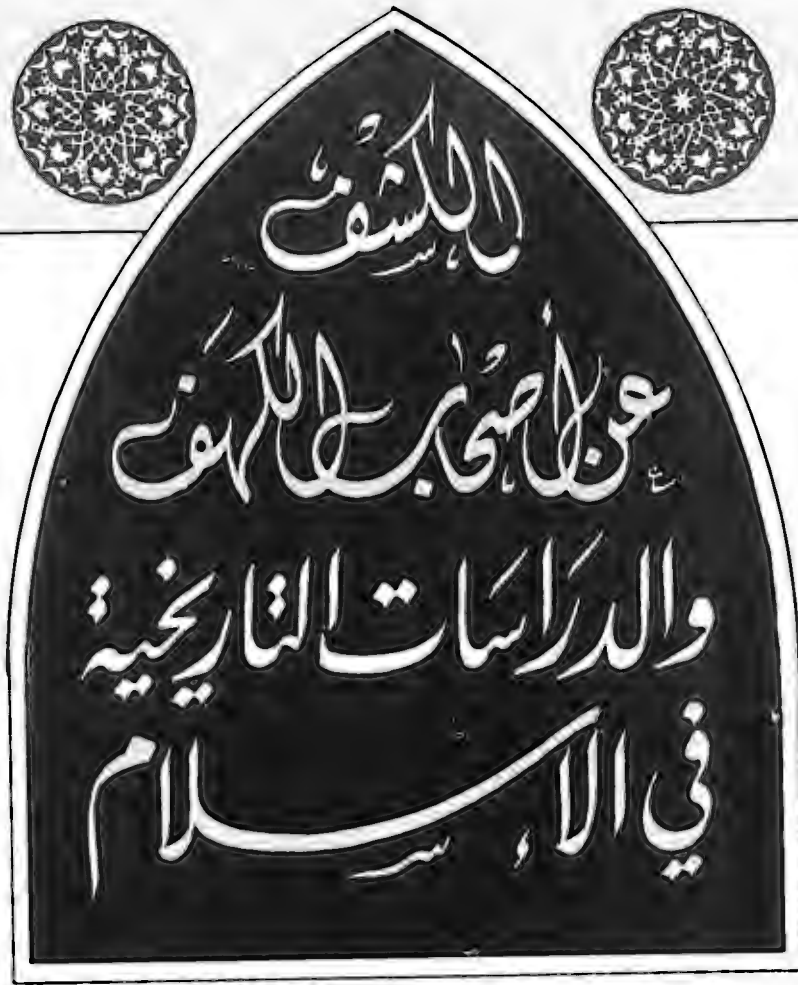 الكشف
عن أصحاب الكهف
والدراسات التاريخية
في الإسلام